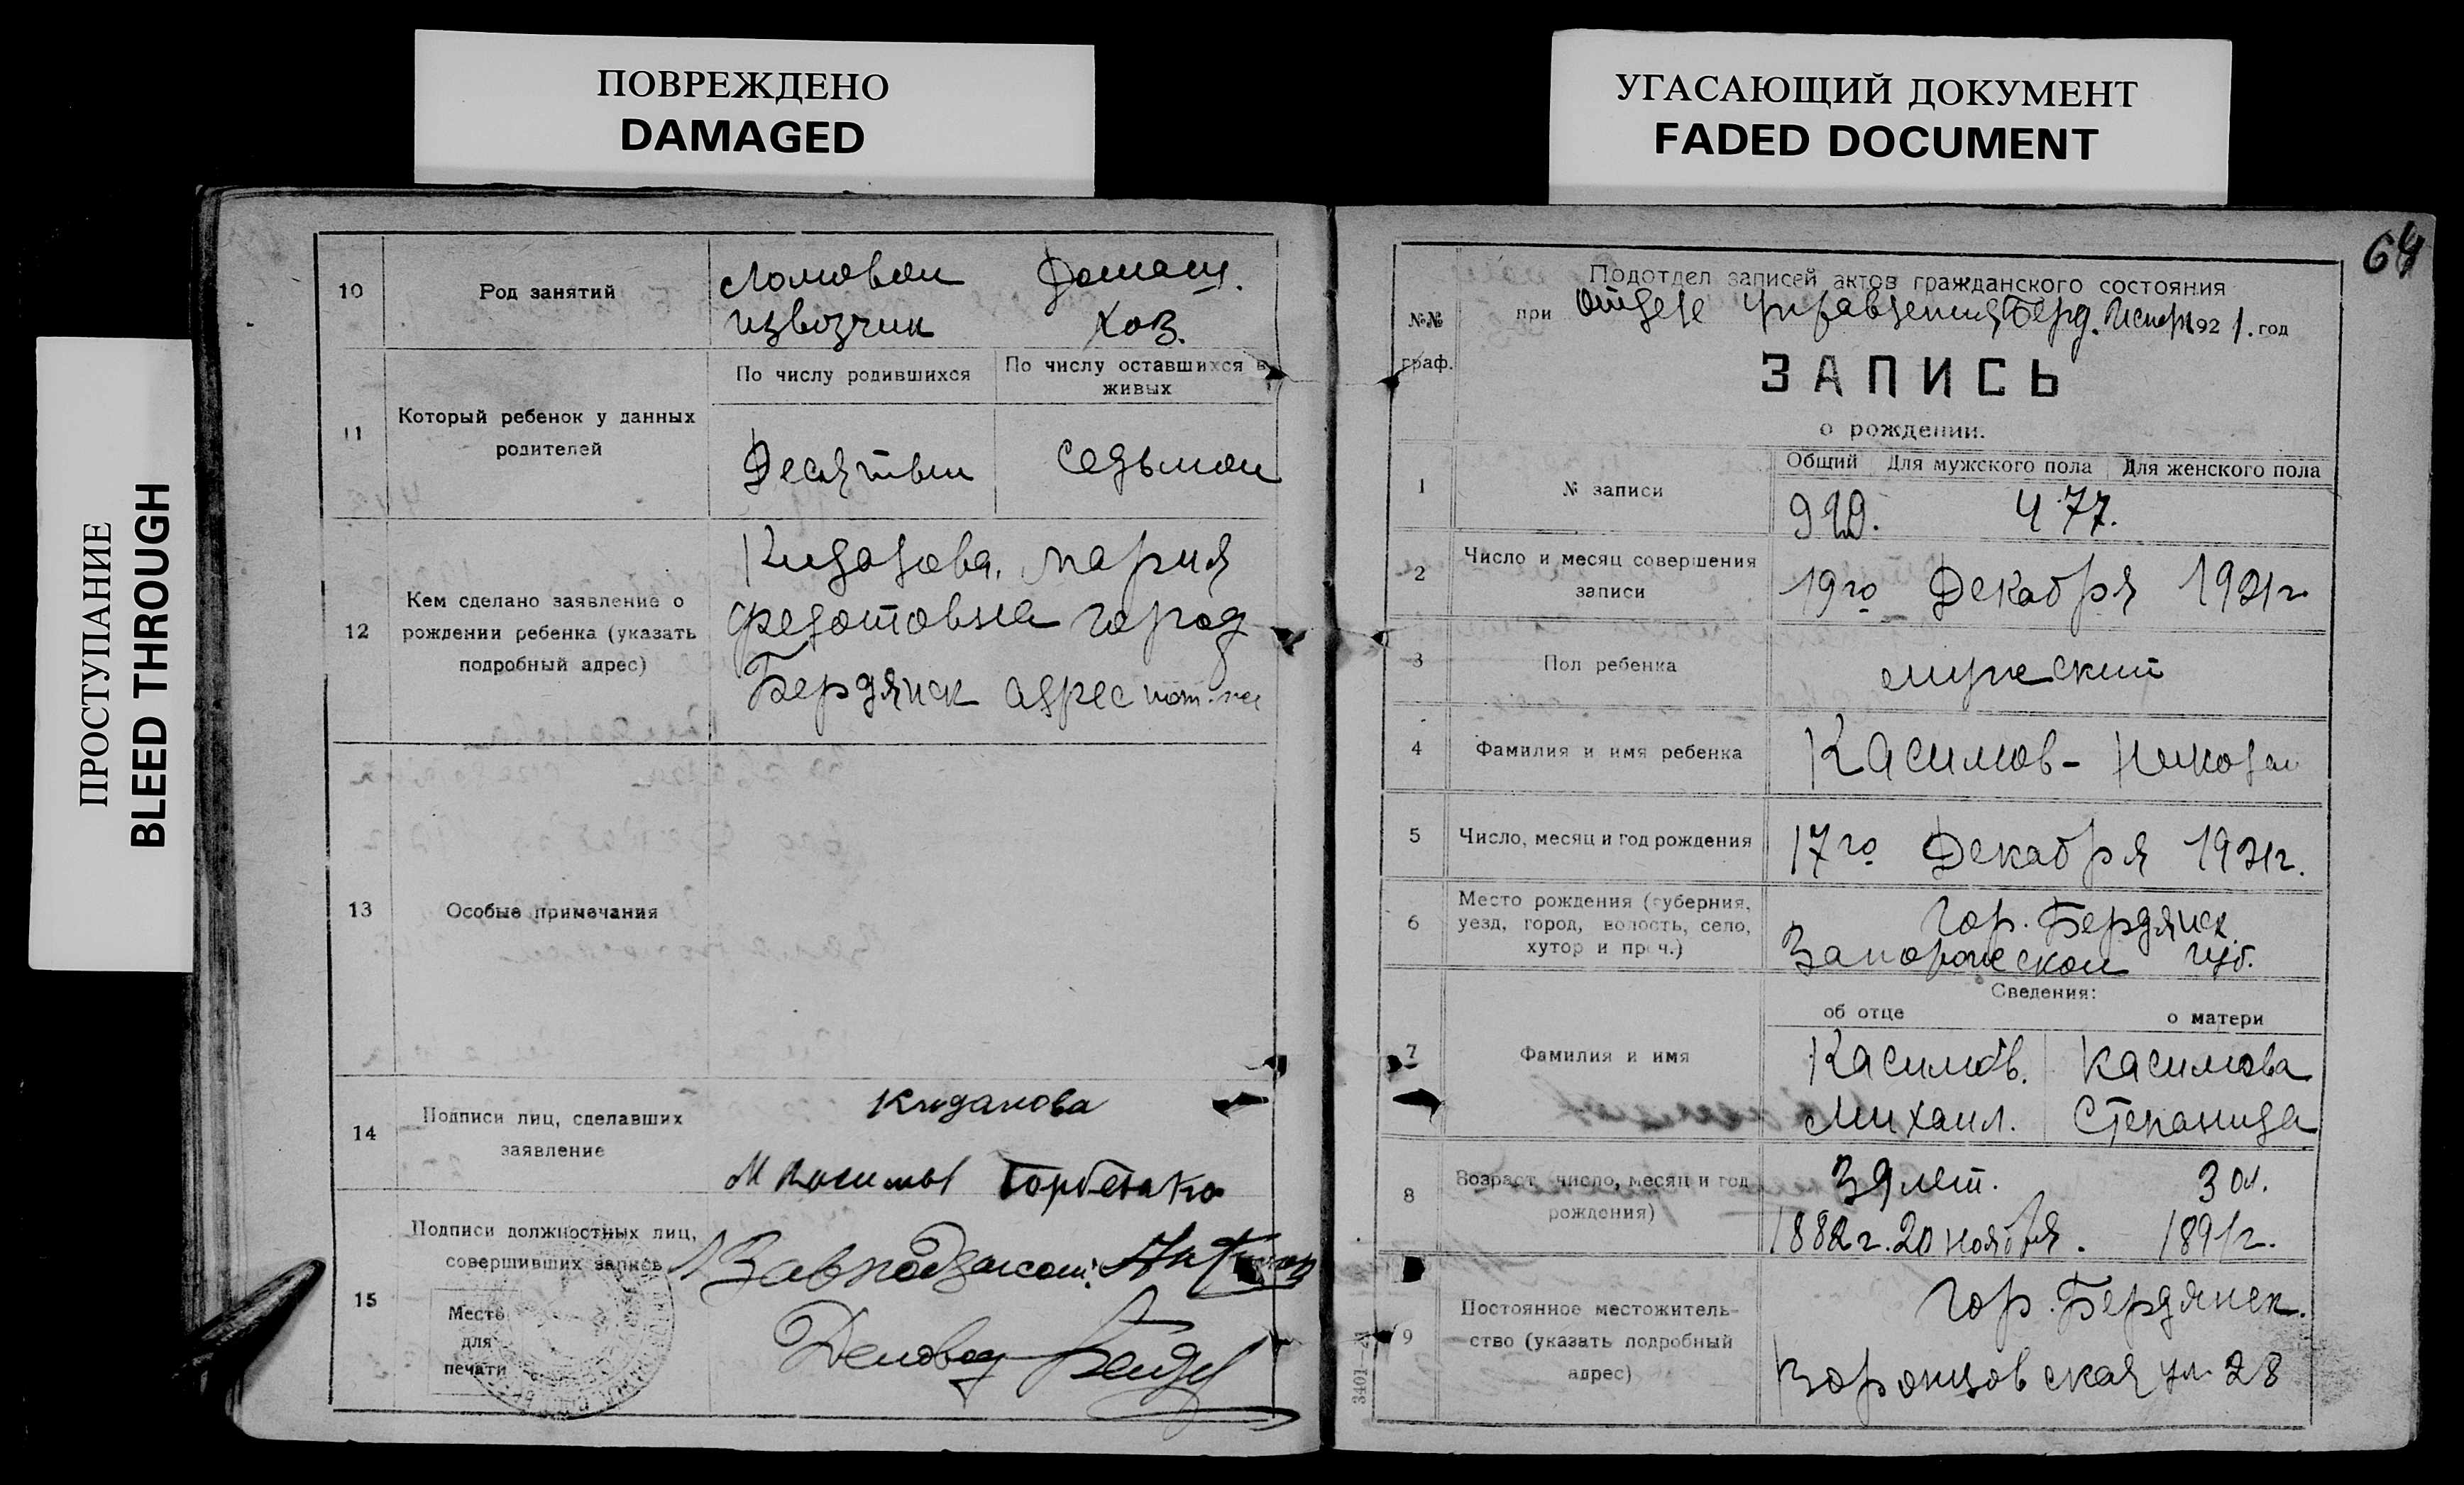 ПОВРЕЖДЕНО
DAMAGED
УГАСАЮЩИЙ ДОКУМЕНТ
FADED DOCUMENT
ПРОСТУПАНИЕ
BLEED THROUGH
10
Род занятий
Ломовой Домаш.
извозчик хоз.
11
Который ребенок у данных
родителей
По числу родившихся
По числу оставшихся в
живых
Десятый
Седьмой
12
Кем сделано заявление о
рождении ребенка (указать
подробный адрес)
Мария
Федотовна город
Бердянск адрес
13
Особые примечания
14
Подписи лиц, сделавших
заявление
15
Подписи должностных лиц,
совершивших запись
Место
для
печати
Деловод
64
№№
граф.
Подотдел записей актов гражданского состояния
при отделе Управления Берд. 1921. год
ЗАПИСЬ
о рождении.
1
№ записи
Общий
Для мужского пола
Для женского пола
477.
2
Число и месяц совершения
записи
19го Декабря 1921г
3
Пол ребенка
мужеский
4
Фамилия и имя ребенка
Касимов - Николай
5
Число, месяц и год рождения
17го Декабря 1921г.
6
Место рождения (губерния,
уезд, город, волость, село,
хутор и проч.)
гор. Бердянск
Запорожской губ.
Сведения:
об отце
о матери
7
Фамилия и имя
Касимов. Касимова
Михаил. Степанида
8
Возраст (число, месяц и год
рождения)
39 лет. 30л.
1882г. 20 ноября. 1891г.
9
Постоянное местожитель-
ство (указать подробный
адрес)
гор. Бердянск.
Воронцовская ул 28
3401